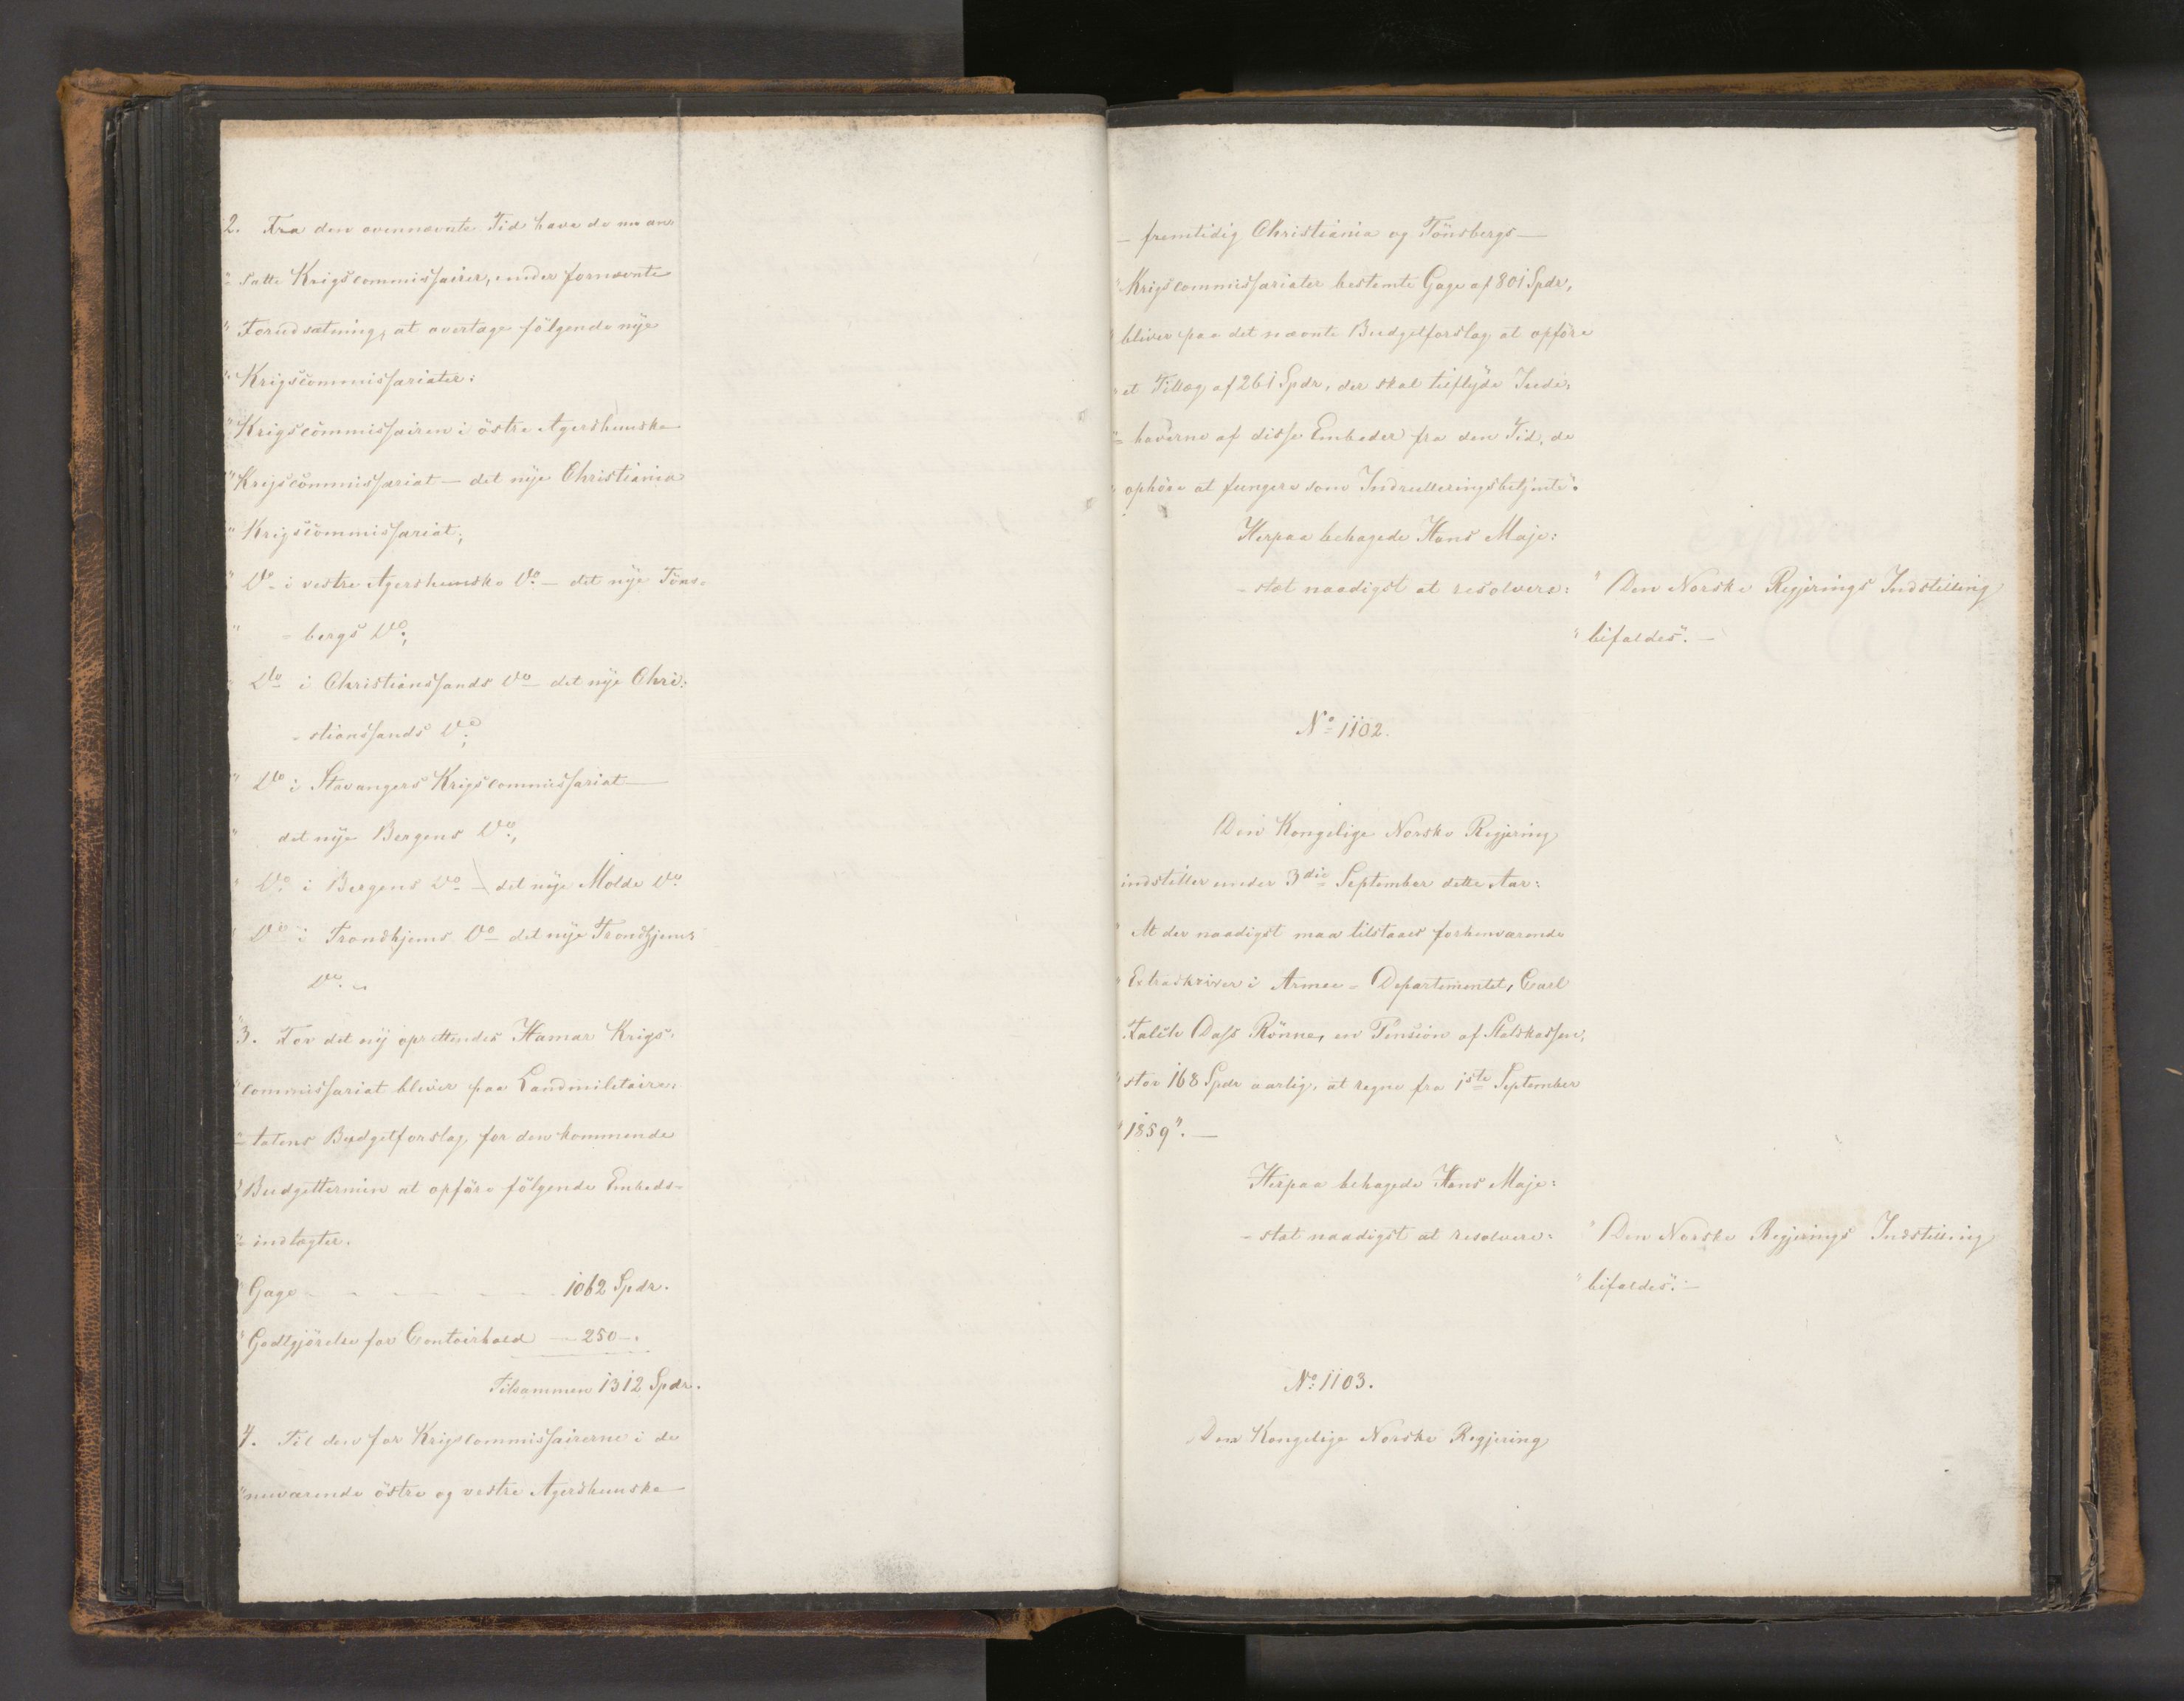 2. Fra den ovennævnte Tid have de nu an-
"- satte Krigscommissairer, under fornævnte
" Forudsætning, at overtage følgende nye
" Krigscommissariater:
" Krigscommissairen i östre Agershuuske
" Krigscommissariat — det nye Christiania
" Krigscommissariat;
" Do i vestre Agershuuske Do. — det nye Töns-
" - bergs Do.;
" Dto i Christianssands Do — det nye Chri:
- stianssands Do;
" Dto i Stavangers Krigscommissariat —
" det nye Bergens Do.,
" Do. i Bergens Do — det nye Molde Do.
" Do i Trondhjems Do — det nye Trondhjems
Do. „
"3. For det ny oprettendes Hamar Krigs-
" commissariat bliver paa Landmilitaire-
"- tatens Budgetforslag for den kommende
" Budgettermin at opföre fölgende Embeds-
"- indtægter.
" Gage - - - - - - 1062 Spdr.
" Godtgjörelse for Contoirhold — 250 —.
Tilsammen 1312 Spdr.
4. Til den for Krigscommissairerne i de
" nuværende östre og vestre Agershuuske —
— fremtidig Christiania og Tönsbergs —
" Krigscommissariater bestemte Gage af 801 Spdr,
" bliver paa det nævnte Budgetforslag at opföre
" et Tillæg af 261 Spdr, der skal tilflyde Inde-
"- haverne af disse Embeder fra den Tid, de
" ophöre at fungere som Indrulleringsbetjente".
Herpaa behagede Hans Maje:
- stæt naadigst at resolvere:
" Den Norske Regjerings Indstilling
" bifaldes". —
No 1102.
Den Kongelige Norske Regjering
indstiller under 3die September dette Aar:
" At der naadigst maa tilstaaes forhenværende
" Extraskriver i Armee-Departementet, Carl
Falch Dass Rönne, en Pension af Statskassen,
" stor 168 Spdr aarlig, at regne fra 1ste September
" 1859". —
Herpaa behagede Hans Maje:
- stæt naadigst at resolvere:
" Den Norske Regjerings Indstilling
" bifaldes". —
No. 1103.
Den Kongelige Norske Regjering